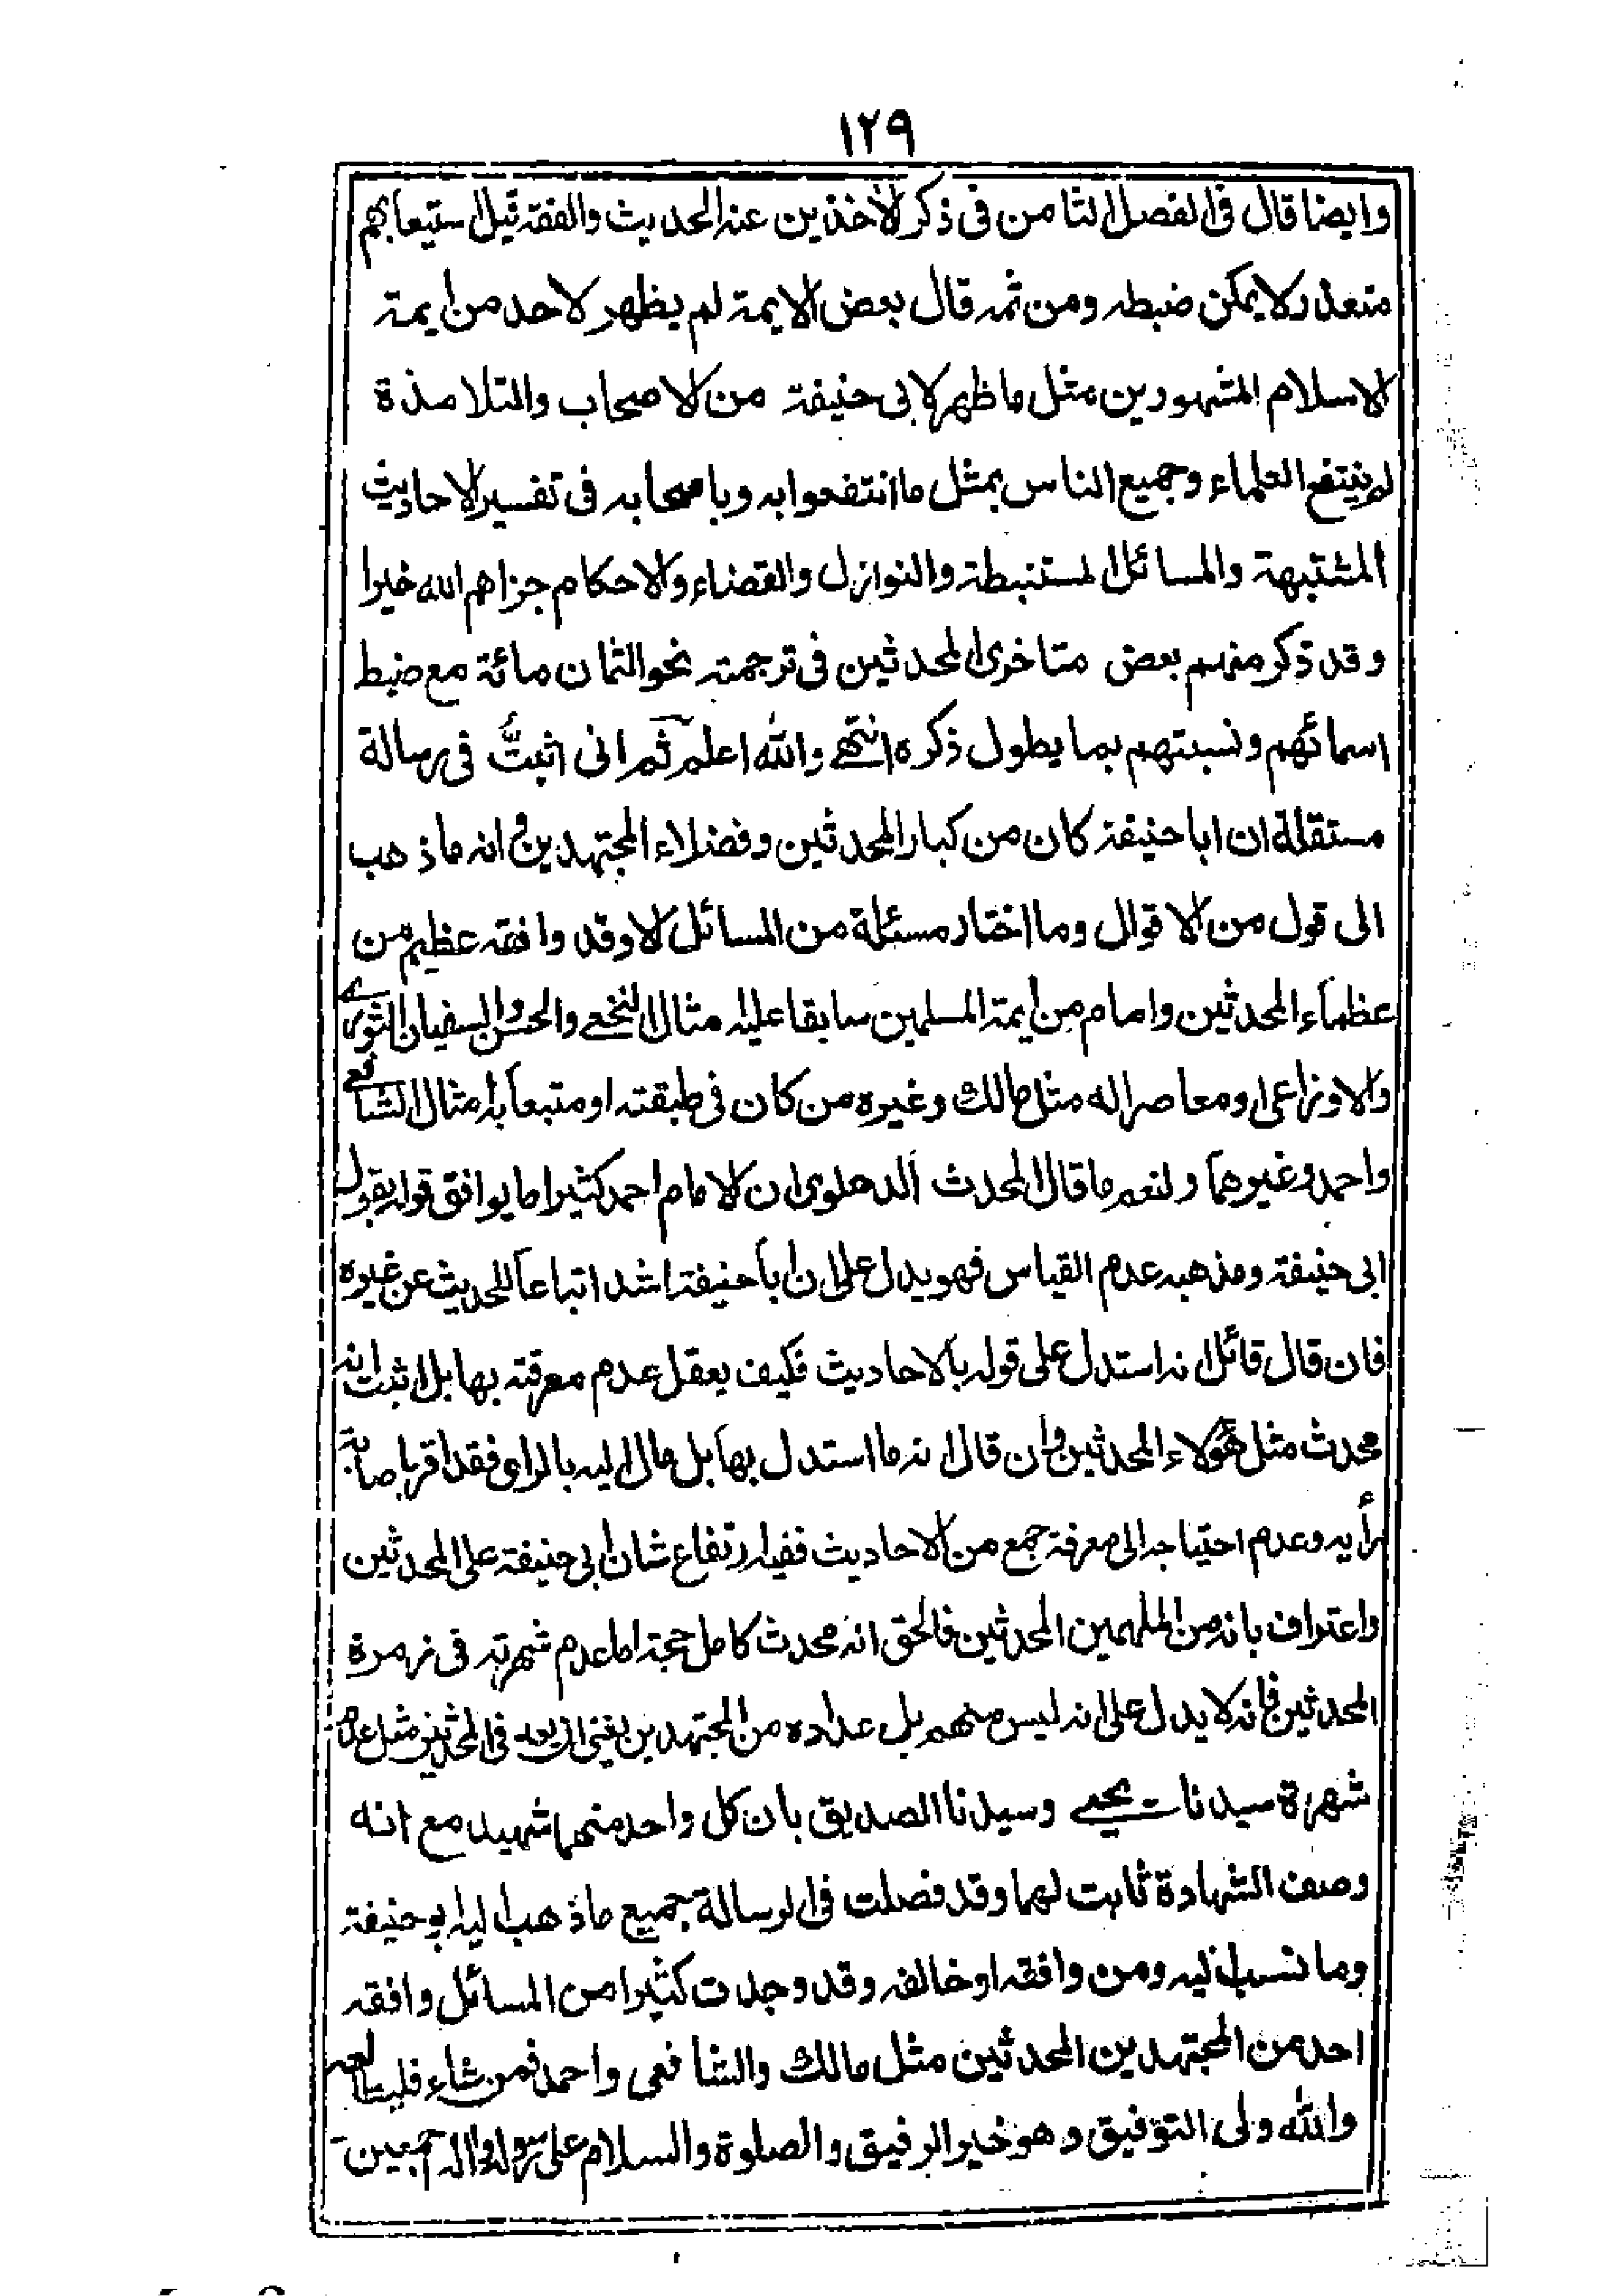 ١٢٩
وايضا قال فى الفصل الثامن فى ذكر الاخذين عنه الحديث والفقه قيل استيعابهم
متعذر لا يمكن ضبطه ومن ثمه قال بعض الايمة لم يظهر لاحد من ايمة
الاسلام المشهورين مثل ما ظهر لابى حنيفة من الاصحاب والتلامذة
لم ينتفع العلماء وجميع الناس بمثل ما انتفعوا به وباصحابه فى تفسير الاحاديث
المشتبهة والمسائل المستنبطة والنوازل والقضاء والاحكام جزاهم الله خيرا
وقد ذكر منهم بعض متاخرى المحدثين فى ترجمته نحو الثمان مائة مع ضبط
اسمائهم ونسبتهم بما يطول ذكره انتهى والله اعلم ثم انى اثبتّ فى رسالة
مستقلة ان ابا حنيفة كان من كبار المحدثين وفضلاء المجتهدين وانه ما ذهب
الى قول من الاقوال وما اختار مسئلة من المسائل الا وقد وافقه عظيم من
عظماء المحدثين وامام من ايمة المسلمين سابقا عليه مثال النخعى والحسن والسفيان الثورى
والاوزاعى او معاصرا له مثل مالك وغيره من كان فى طبقته او متبعا به امثال الشافعى
واحمد وغيرهما ولنعم ما قال المحدث الدهلوى ان الامام احمد كثيرا ما يوافق قوله بقول
ابى حنيفة ومذهبه عدم القياس فهو يدل على ان ابا حنيفة اشد اتباعا للحديث عن غيره
فان قال قائل انه استدل على قوله بالاحاديث فكيف يعقل عدم معرفته بها بل اثبت انه
محدث مثل هؤلاء المحدثين وان قال انه ما استدل بها بل مال اليه بالراى فقد اقر باصابة
رأيه وعدم احتياجه الى معرفة جمع من الاحاديث ففيه ارتفاع شان ابى حنيفة على المحدثين
واعتراف بانه من الملهمين المحدثين فالحق انه محدث كامل حجة اما عدم شهرته فى زمرة
المحدثين فانه لا يدل على انه ليس منهم بل عداده من المجتهدين يغنى ان يعد فى المحدثين مثل عدم
شهرة سيدنا يحيى وسيدنا الصديق بان كل واحد منهما شهيد مع انه
وصف الشهادة ثابت لهما وقد فصلت فى الرسالة جميع ما ذهب اليه ابو حنيفة
وما نسب اليه ومن وافقه او خالفه وقد وجدت كثيرا من المسائل وافقه
احد من المجتهدين المحدثين مثل مالك والشافعى واحمد فمن شاء فليطالعه
والله ولى التوفيق وهو خير الرفيق والصلوة والسلام على رسوله واله اجمعين